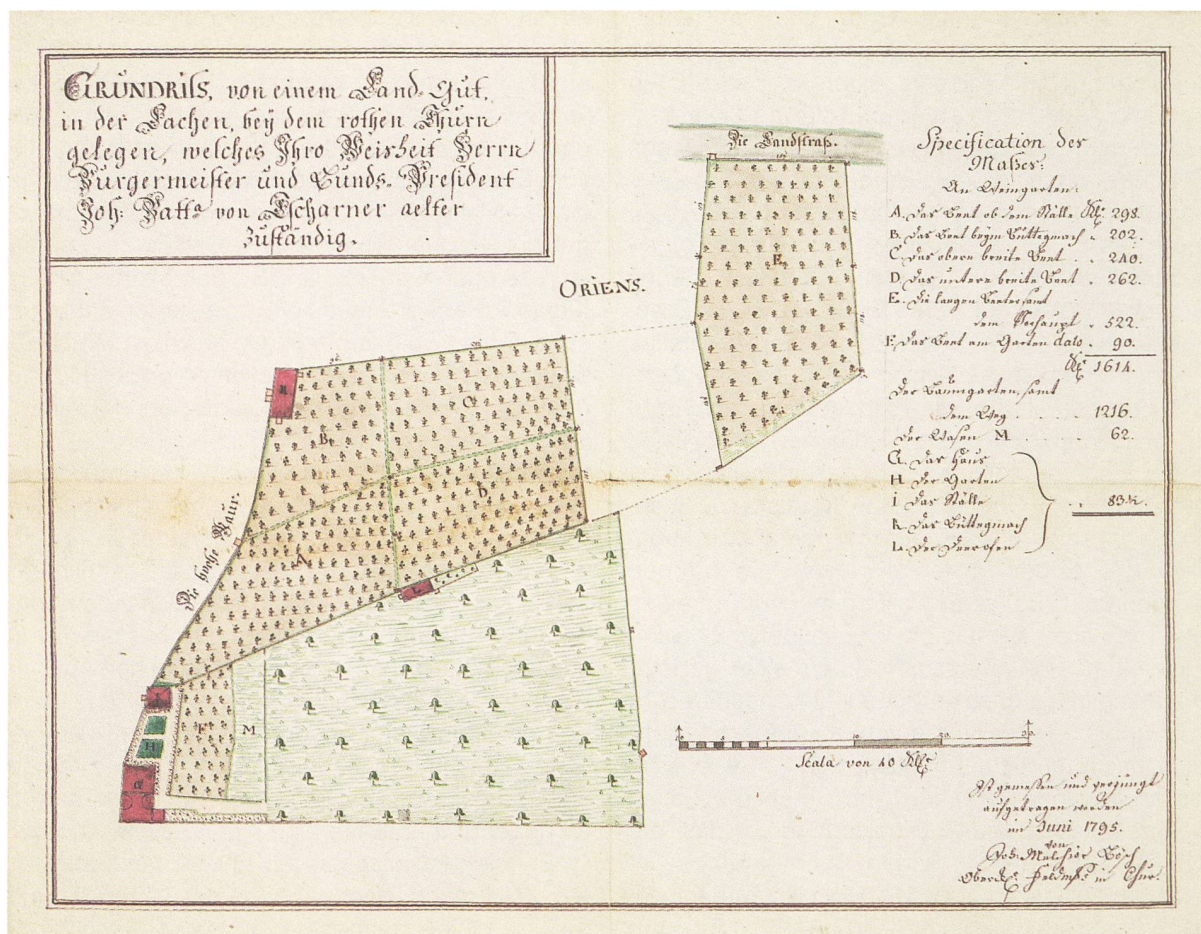 GRUNDRISS, von einem Land-Gut,
in der Lachen, bey dem rothen Thurn
gelegen, welches Ihro Weisheit Herrn
Burgermeister und Bunds-President
Joh: Batt.ª von Tscharner aelter
zuständig.
Die Landstraß.
E.
ORIENS.
K
B.
C.
D
A
Die hoche Maur.
L
I
H
F
M
G
Specification des
Maßes:
An Weingarten:
A. Das Beet ob dem Ställe Klr. 298.
B. Das Beet beym Büttegmach " 202.
C. Das obere breite Beet . . 240.
D. Das untere breite Beet . 262.
E. Die langen Beeter samt
dem Vorhaupt . 522.
F. Das Beet am Garten dato . 90.
Klr. 1614.
Der Baumgarten, samt
dem Weg . . . . . 1216.
Der Wasen M . . . . . 62.
G. Das Haus
H Der Garten
I Das Ställe
K. Das Büttegmach
L. Der
. . 83½.
10 20 30
Scala von 40 Klr.
Ist gemessen und verjüngt
aufgetragen worden
im Juni 1795.
von
Joh: Melchior Bösch
in Chur.